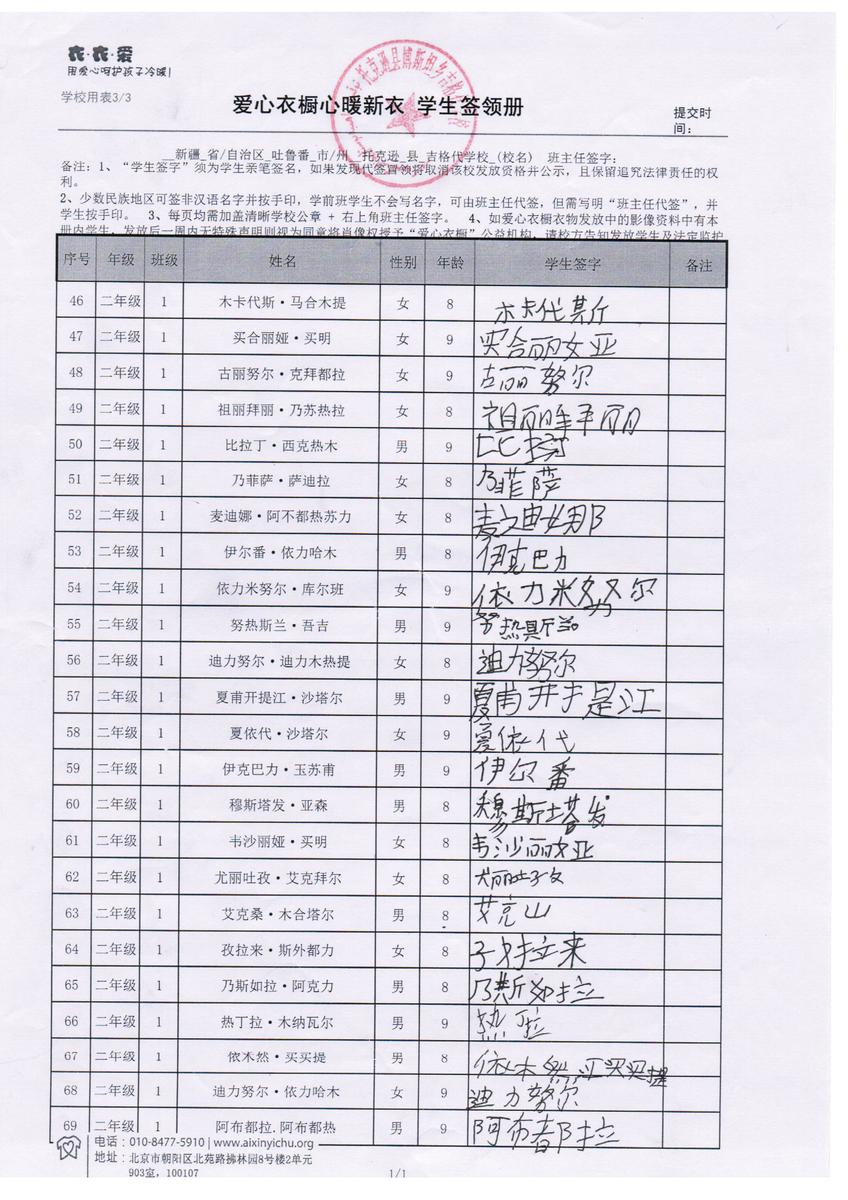 衣·衣·爱
用爱心呵护孩子冷暖!
学校用表3/3
爱心衣橱心暖新衣 学生签领册
提交时间:
新疆_省/自治区_吐鲁番_市/州 托克逊_县_吉格代学校_(校名) 班主任签字:
备注:1、“学生签字”须为学生亲笔签名,如果发现代签冒领将取消该校发放资格并公示,且保留追究法律责任的权
利。
2、少数民族地区可签非汉语名字并按手印,学前班学生不会写名字,可由班主任代签,但需写明“班主任代签”,并
学生按手印。 3、每页均需加盖清晰学校公章 + 右上角班主任签字。 4、如爱心衣橱衣物发放中的影像资料中有本
册内学生,发放后一周内无特殊声明则视为同意将肖像权授予“爱心衣橱”公益机构,请校方告知发放学生及法定监护
序号 年级 班级 姓名 性别 年龄 学生签字 备注
46 二年级 1 木卡代斯·马合木提 女 8 木卡代斯
47 二年级 1 买合丽娅·买明 女 9 买合丽娅
48 二年级 1 古丽努尔·克拜都拉 女 9 古丽努尔
49 二年级 1 祖丽拜丽·乃苏热拉 女 8 祖丽拜丽
50 二年级 1 比拉丁·西克热木 男 9 比拉丁
51 二年级 1 乃菲萨·萨迪拉 女 8 乃菲萨
52 二年级 1 麦迪娜·阿不都热苏力 女 8 麦迪娜
53 二年级 1 伊尔番·依力哈木 男 8 伊克巴力
54 二年级 1 依力米努尔·库尔班 女 9 依力米努尔
55 二年级 1 努热斯兰·吾吉 男 9 努热斯兰
56 二年级 1 迪力努尔·迪力木热提 女 8 迪力努尔
57 二年级 1 夏甫开提江·沙塔尔 男 9 夏甫开提江
58 二年级 1 夏依代·沙塔尔 女 9 夏依代
59 二年级 1 伊克巴力·玉苏甫 男 9 伊尔番
60 二年级 1 穆斯塔发·亚森 男 8 穆斯塔发
61 二年级 1 韦沙丽娅·买明 女 8 韦沙丽娅
62 二年级 1 尤丽吐孜·艾克拜尔 女 8 尤丽吐孜
63 二年级 1 艾克桑·木合塔尔 男 8 艾克山
64 二年级 1 孜拉来·斯外都力 女 8 孜拉来
65 二年级 1 乃斯如拉·阿克力 男 8 乃斯如拉
66 二年级 1 热丁拉·木纳瓦尔 男 9 热拉
67 二年级 1 依木然·买买提 男 8 依木然江买买提
68 二年级 1 迪力努尔·依力哈木 女 9 迪力努尔
69 二年级 1 阿布都拉.阿布都热 男 9 阿布都拉
电话:010-8477-5910 | www.aixinyichu.org
地址:北京市朝阳区北苑路拂林园8号楼2单元
903室,100107
1/1